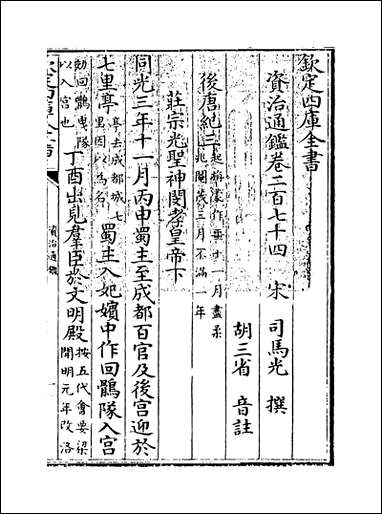 欽定四庫全書
資治通鑑卷二百七十四
宋 司馬光 撰
胡三省 音註
後唐紀三
起旃蒙作噩十一月盡柔
兆閹茂三月不滿一年
莊宗光聖神閔孝皇帝下
同光三年十一月丙申蜀主至成都百官及後宮迎於
七里亭
亭去成都城七
里因以為名
蜀主入妃嬪中作回鶻隊入宮
効回鶻曳隊
以入宮也
丁酉出見羣臣於文明殿
按五代會要梁
開明元年改洛
資治通鑑